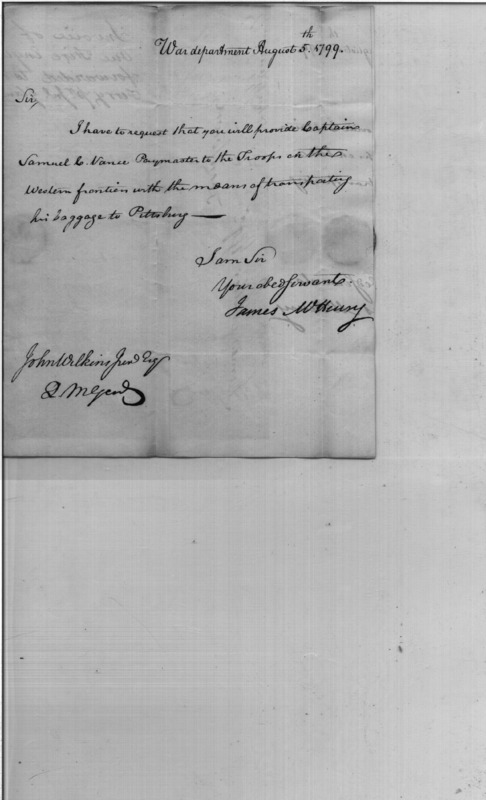 War department August 5th. 1799.
Sir,
I have to request that you will provide Captain
Samuel C. Vance Paymaster to the Troops on the
Western frontiers with the means of transporting
his baggage to Pittsburg —
I am Sir
Your obed Servant
James McHenry
John Wilkins Junr Esqr
Q M Genl